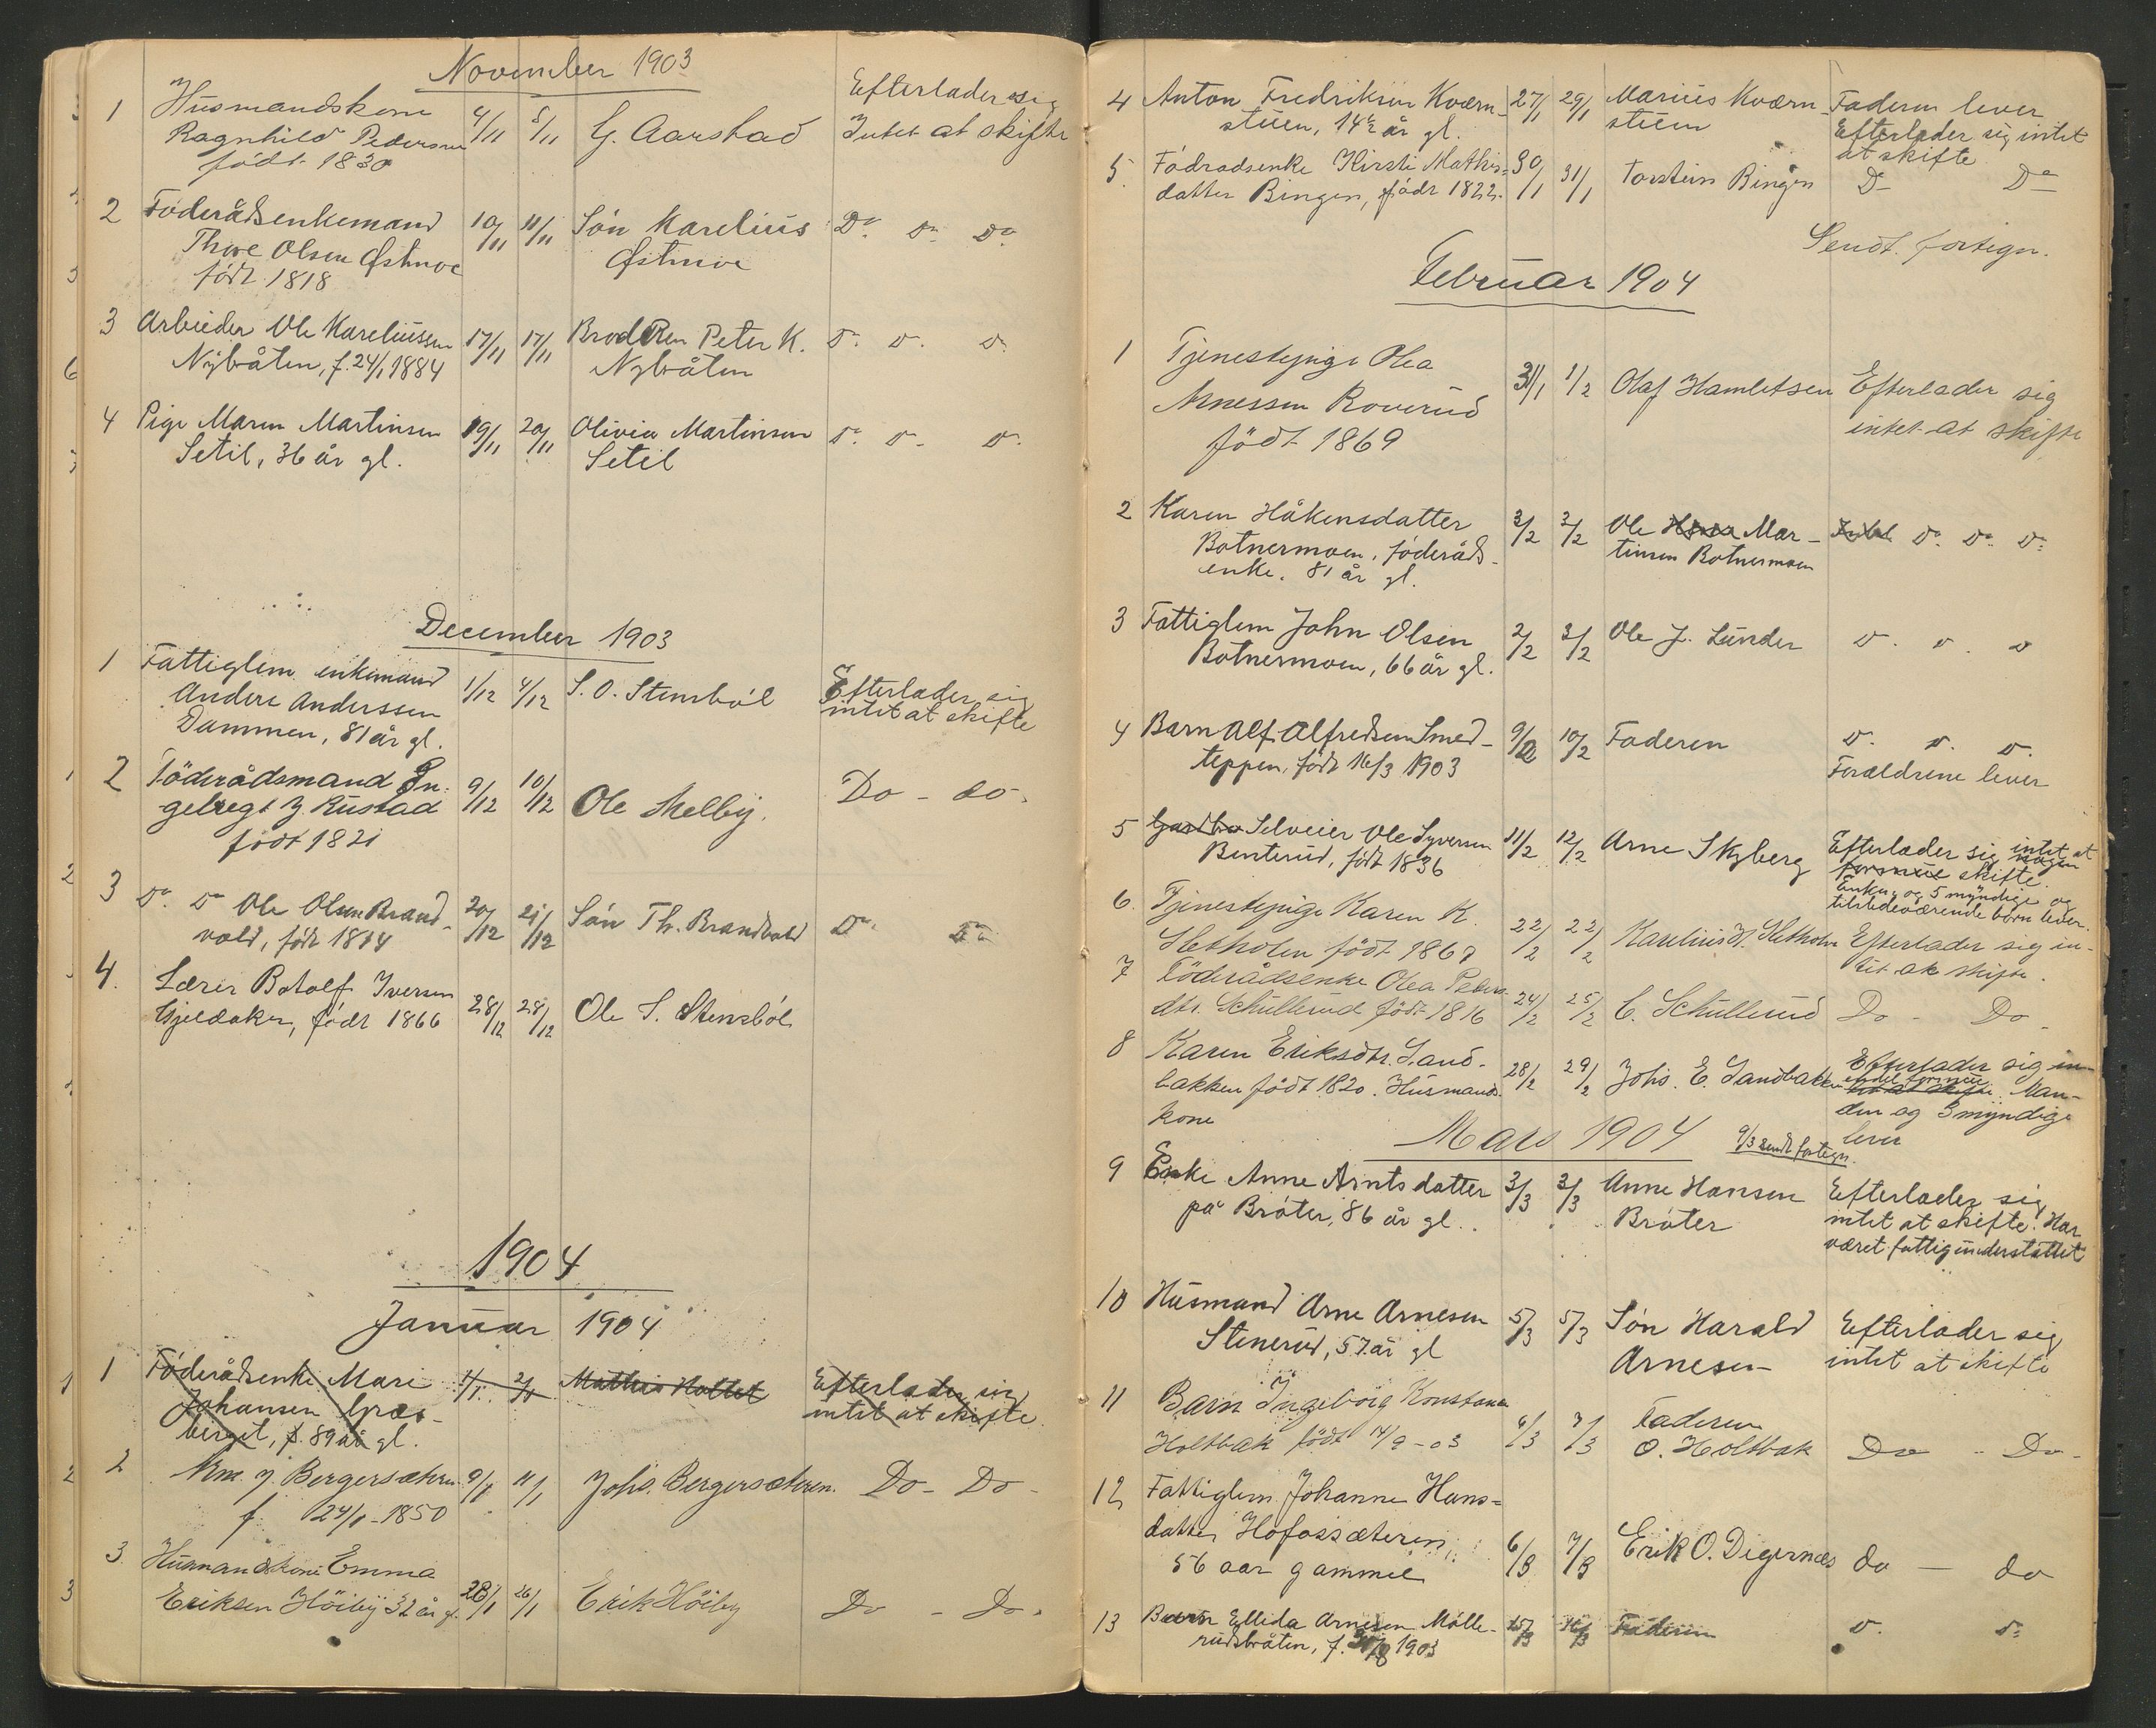 November 1903
1 Husmandskone 4/11 5/11 G. Aarstad Efterlader sig
Ragnhild Pedersen Intet at skifte
født 1830
2 Føderådsenkemand 10/11 11/11 Søn Karelius Do. Do. Do.
Thore Olsen Østmoe Østmoe
født 1818
3 Arbeider Ole Kareliussen 17/11 17/11 Broderen Peter K. Do. Do. Do.
Nybråten, f. 24/1 1884 Nybråten
4 Pige Maren Martinsen 19/11 20/11 Olivia Martinsen Do. Do. Do.
Setil, 36 år gl. Setil
December 1903
1 Fattiglem enkemand 1/12 4/12 S. O. Stensbøl Efterlader sig
Anders Anderssen intet at skifte
Dammen, 81 år gl.
2 Føderådsmand En- 9/12 10/12 Ole Skelby. Do - do -
gebregt J. Rustad
født 1821
3 Do. Do Ole Olsen Brand- 20/12 21/12 Søn Th. Brandvold Do. Do.
vold, født 1814
4. Lærer Botolf Iversen 28/12 28/12 Ole S. Stensbøl
Gjeldaker, født 1866
1904
Januar 1904
1 Føderådsenke Mari 1/1 2/1 Mathis Kolbet Efterlader sig
Johansen Græs- intet at skifte
berget, f. 89 år gl.
2 Nm. J. Bergersæteren 9/1 11/1 Johs. Bergersæteren. Do - Do -
f. 24/1 - 1850
3 Husmandskone Emma
Eriksen Höiby 32 år gl. 23/1 26/1 Erik Höiby Do - Do.
4 Anton Fredriksen Kværn- 27/1 29/1 Marius Kværn- Faderen lever
stuen, 14½ år gl. stuen Efterlader sig intet
at skifte
5. Födradsenke Kirsti Mathis- 30/1 31/1 Torstein Bingen Do Do
datter Bingen, født 1822.
Sendt fortegn.
Februar 1904
1 Tjenestepige Olea
Arnessen Roverud 31/1 1/2 Olaf Hamletsen Efterlader sig
født 1869 intet at skifte
2 Karen Håkensdatter 2/2 2/2 Ole Mar- Do. Do. Do.
Botnermoen, føderåds- tinsen Botnermoen
enke. 81 år gl.
3 Fattiglem John Olsen 2/2 3/2 Ole J. Lunder Do. Do. Do
Botnermoen, 66 år gl.
4 Barn Alf Alfredsen Smed- 9/2 10/2 Faderen Do. Do. Do.
teppen, født 16/3 1903 Forældrene lever
5 Selveier Ole Syversen 11/2 12/2 Arne Skyberg Efterlader sig intet at
Benterud, født 1836 nogen formue skifte.
Enken og 5 myndige og
tilstedeværende børn lever.
6. Tjenestepige Karen K. 22/2 22/2 Karelius H. Hetholen Efterlader sig in-
Hetholen født 1867 tet at skifte.
7 Föderådsenke Olea Peders-
dtr. Schullerud født 1816 24/2 25/2 C. Schullerud Do - Do -
8 Karen Eriksdtr. Sand- 28/2 29/2 Johs. E. Sandbakken Efterlader sig in-
bakken født 1820. Husmands- tet at skifte. Man-
kone den og 3 myndige
lever
Mars 1904 9/3 sendt fortegn.
9 Enke Anne Arntsdatter 3/3 3/3 Anne Hansen Efterlader sig
på Bråter, 86 år gl. Bråter intet at skifte. Har
været fattigunderstøttet
10 Husmand Arne Arnesen 5/3 5/3 Søn Harald Efterlader sig
Stenerud, 57 år gl Arnesen intet at skifte
11 Barn Ingeborg Konstanse
Holtbak født 14/9 - 03 6/3 7/3 Faderen
O. Holtbak Do - Do -
12 Fattiglem Johanne Hans-
datter Hofossæteren 6/3 7/3 Erik O. Digernæs do - do
56 aar gammel
13 Barn Ellida Arnesen Mölle- 15/3 16/3 Faderen Do. Do.
rudsbråten, f. 1903